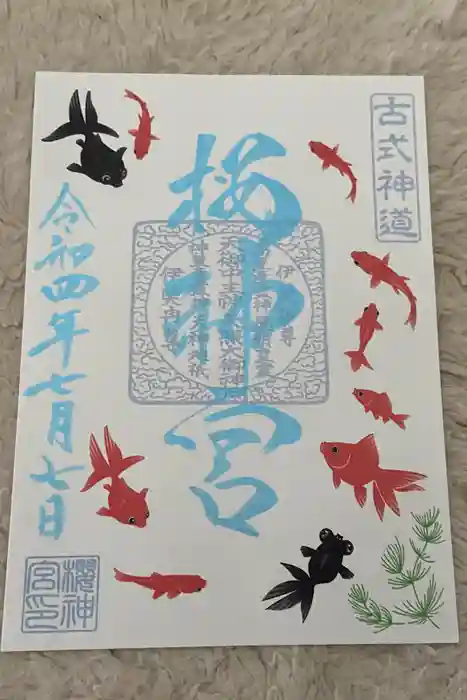 古式神道
桜神宮
令和四年七月七日
櫻神宮印